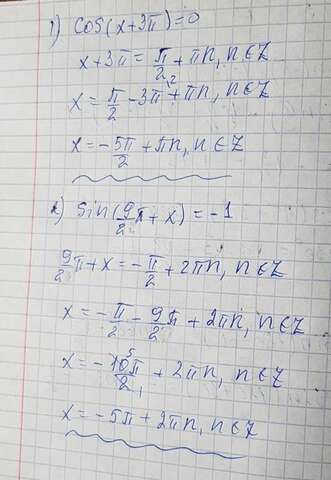 1) cos(x+3π)=0
x+3π = π/2 + πn, n∈Z
x = π/2 - 3π + πn, n∈Z
x = -5π/2 + πn, n∈Z
2) sin(9/2 π + x) = -1
9/2 π + x = -π/2 + 2πn, n∈Z
x = -π/2 - 9/2 π + 2πn, n∈Z
x = -10π/2 + 2πn, n∈Z
x = -5π + 2πn, n∈Z